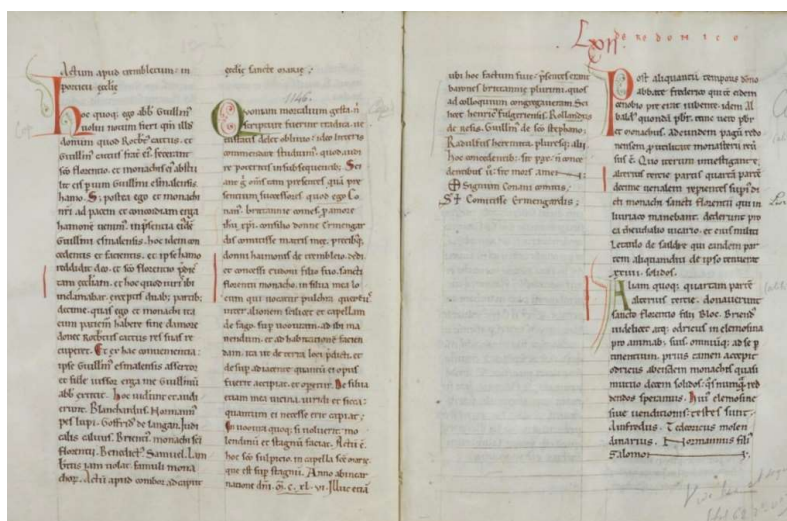 Actum apud cremblecum in
porticu eccłie
Hoc quoq; ego abb Guillmˢ
volui notum fieri qđ illđ
donum quod Rotbtˢ cattus et
Guillmˢ cattus frat eiˢ fecerant
sco florentio et monachis
Guillmi esmalensis
hamo. Sꝫ postea ego et monachi
nr̄i ad pacem et concordiam erga
hamone venim. in p̄sentia eiđē
Guillmi esmalensis. hoc idem con
cedentis et facientis. et ipse hamo
reddidit deo. et sco florentio
tam eccłiam. et hoc quod iuri
inclamabat. exceptis duab; partib;
decime. quas ego et monachi ita
eum pacient habere sine
donec Rotbtˢ cattus res suas re
cuperet. Et ex hac convenientia.
ipse Guillmˢ esmalensis assertor
et fidei iussor erga me Guillmū
abb extitit. Hoc vidunt et audi
erunt. Blanchardus. Normannˢ
pes lupi. Goffridˢ de langan. Judi
calis calvus. Brientˢ. monachi sci
florentii. Benedictˢ. Samuel. Lam
btus famuli mona
choꝝ. Actū apud combor ad caput
eccłie sancte marie;
1146.
Quoniam mortalium gesta ni
scripture fuerint tradita. ve
tustatis delet oblivio; ideo litteris
commendare studuimˢ. quod audi
re poteritis in subsequentib;. Sci
ant g̊ om̄s tam presentes quā pre
sentium successores. quod ego Co
nanˢ. britannie comes. p amore
dnı̄. xp̄i. consilio donne Ermengar
dis comitisse matris mee. precibq;
donni haimonis de rembleio. dedi
et concessi eudoni filio suo. sancti
florentii monacho. in silva mea lo
cum qui vocatur pulchra quertˢ
inter alionem scilicet et capellam
de fago. sup noetuam. ad ibi ma
nendum. et ad habitacione facien
dam. ita ut de terra loci p̄dicti. et
de sup adiacente quantū ei opus
fuerit accipiat. et operetur. De silva
etiam mea vicina. viridi et sicca;
quantum ei necesse erit capiat;
In noetua quoq; si voluerit. mo
lendinū et stagnū faciat. Acta ē.
hoc sco sulpicio. in capella sce marie.
que est sup stagnū. Anno ab incar
natione dni. M. C. XL. VI. Illuc etiā
ubi hoc factum fuit. p̄sentes erant
barones britannie plurimi. quos
ad colloquium congregaveram. Sci
licet henricˢ fulgeriensis. Rollandus
de nefia. Guillmˢ de sco stephano;
Radulfus heremita. pluresq; alii;
hoc concedentib; sit pax. n̄ conce
dentibus vˢ. sit mors. amen
Signum Conani comitis.
S Comitisse Ermengardis;
LXII. DE REDONICO
Post aliquantū temporis dono
abbate frederico qui ei eidem
cenobio pre erat iubente. idem Al
baldˢ quondā pbr. tunc vero pbr
et monachus. Ad eundem pagū redo
nensem. p utilitate monasterii rev
sus ē. Quo iterum investigante.
alterius tertie partis quartā partē
decime venalem repientes sup̄ di
cti monachi sancti florentii qui in
livriaco manebant. dederunt pro
ea theudialio vicario. et eius militi
Letaldo de saildre qui eandem par
tem aliquandiu de ipso tenuerat
xxxiii. solidos.
Aliam quoq; quartam partē
alterius tertie. donaverunt
sancto florentio filii Bloc. Briendˢ
videlicet atq; odricus in elemosina
pro animab; suis. omniūq; ad se p
tinentium. prius tamen accepit
odricus ab eisdem monachis quasi
mutuo decem solidos; q̄s nunquā red
dendos speramus. Huiˢ elemosine
sive venditionis. testes sunt.
Ansredus. Tedoricus molen
dinarius. Normannus filiˢ
Salomor